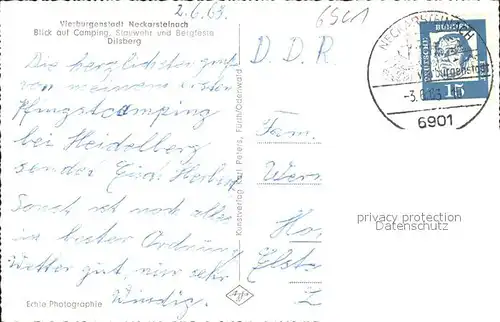 2.6.63.
6501
Vierburgenstadt Neckarsteinach
Blick auf Camping, Stauwehr und Bergfeste
Dilsberg
D. D. R.
NECKARSTEINACH
Vierburgenstadt
-3.6.63
6901
DEUTSCHE BUNDESPOST
15
Die herzlichsten Grüße
von meinem ersten
Pfingstcamping
bei Heidelberg
sendet Eisa Herbert
Sonst ist noch alles
in bester Ordnung
Wetter gut, nur sehr
Windig.
Kunstverlag Karl Peters, Fürth/Odenwald
Fam.
Wern
Ho
Elst
privacy protection
Datenschutz
Echte Photographie
Agfa